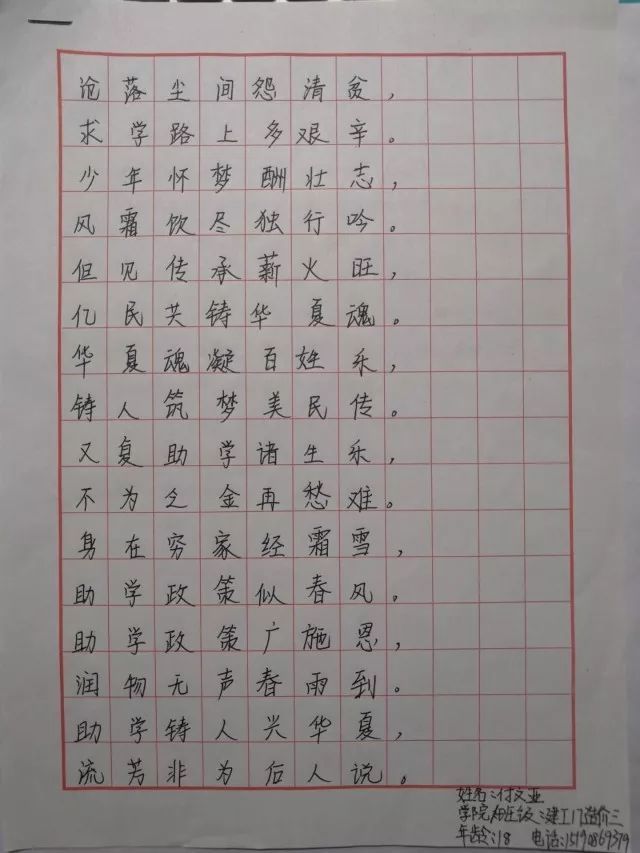 沧落尘间怨清贫，
求学路上多艰辛。
少年怀梦酬壮志，
风霜饮尽独行吟。
但见传承薪火旺，
亿民共铸华夏魂。
华夏魂凝百姓乐，
铸人筑梦美民传。
又复助学诸生乐，
不为乏金再愁难。
身在穷家经霜雪，
助学政策似春风。
助学政策广施恩，
润物无声春雨到。
助学铸人兴华夏，
流芳非为后人说。
姓名：付文亚
学院和班级：建工17造价三
年龄：18 电话：15190869379